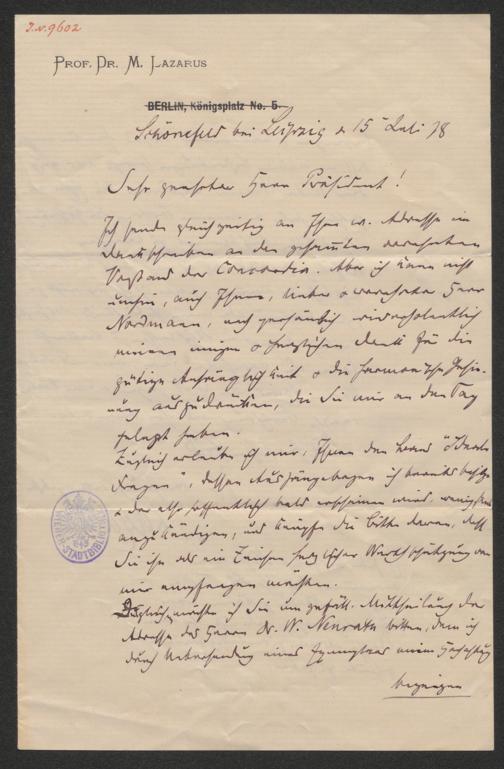 J.N. 9602
PROF. DR. M. LAZARUS
BERLIN, Königsplatz No. 5.
Schönefeld bei Leipzig d 15 Juli 78
Sehr geehrter Herr Präsident!
Ich sende gleichzeitig an Ihre w. Adresse ein
Dankschreiben an den gesammten verehrten
Vorstand der Concordia. Aber ich kann nicht
umhin, auch Ihnen, lieber u verehrter Herr
Nordmann, noch persönlich wiederholentlich
meinen innigen u herzlichen Dank für die
gütige Anhänglichkeit u die Gesin-
nung auszudrücken, die Sie mir an den Tag
gelegt haben.
Zugleich erlaube ich mir, Ihnen den
Fragen", dessen Aushängebogen ich bereits besitze
u der also öffentlich bald erscheinen wird, wenigstens
anzukündigen, und knüpfe die Bitte daran, daß
Sie ihn als ein Zeichen herzlicher Werthschätzung von
mir empfangen möchten.
möchte ich Sie um gefäll. Mittheilung der
Adresse des Herrn Dr. W. bitten, dem ich
durch Uebersendung eines Exemplares meine Hochachtung
bezeigen
WIENER STADTBIBLIOTHEK